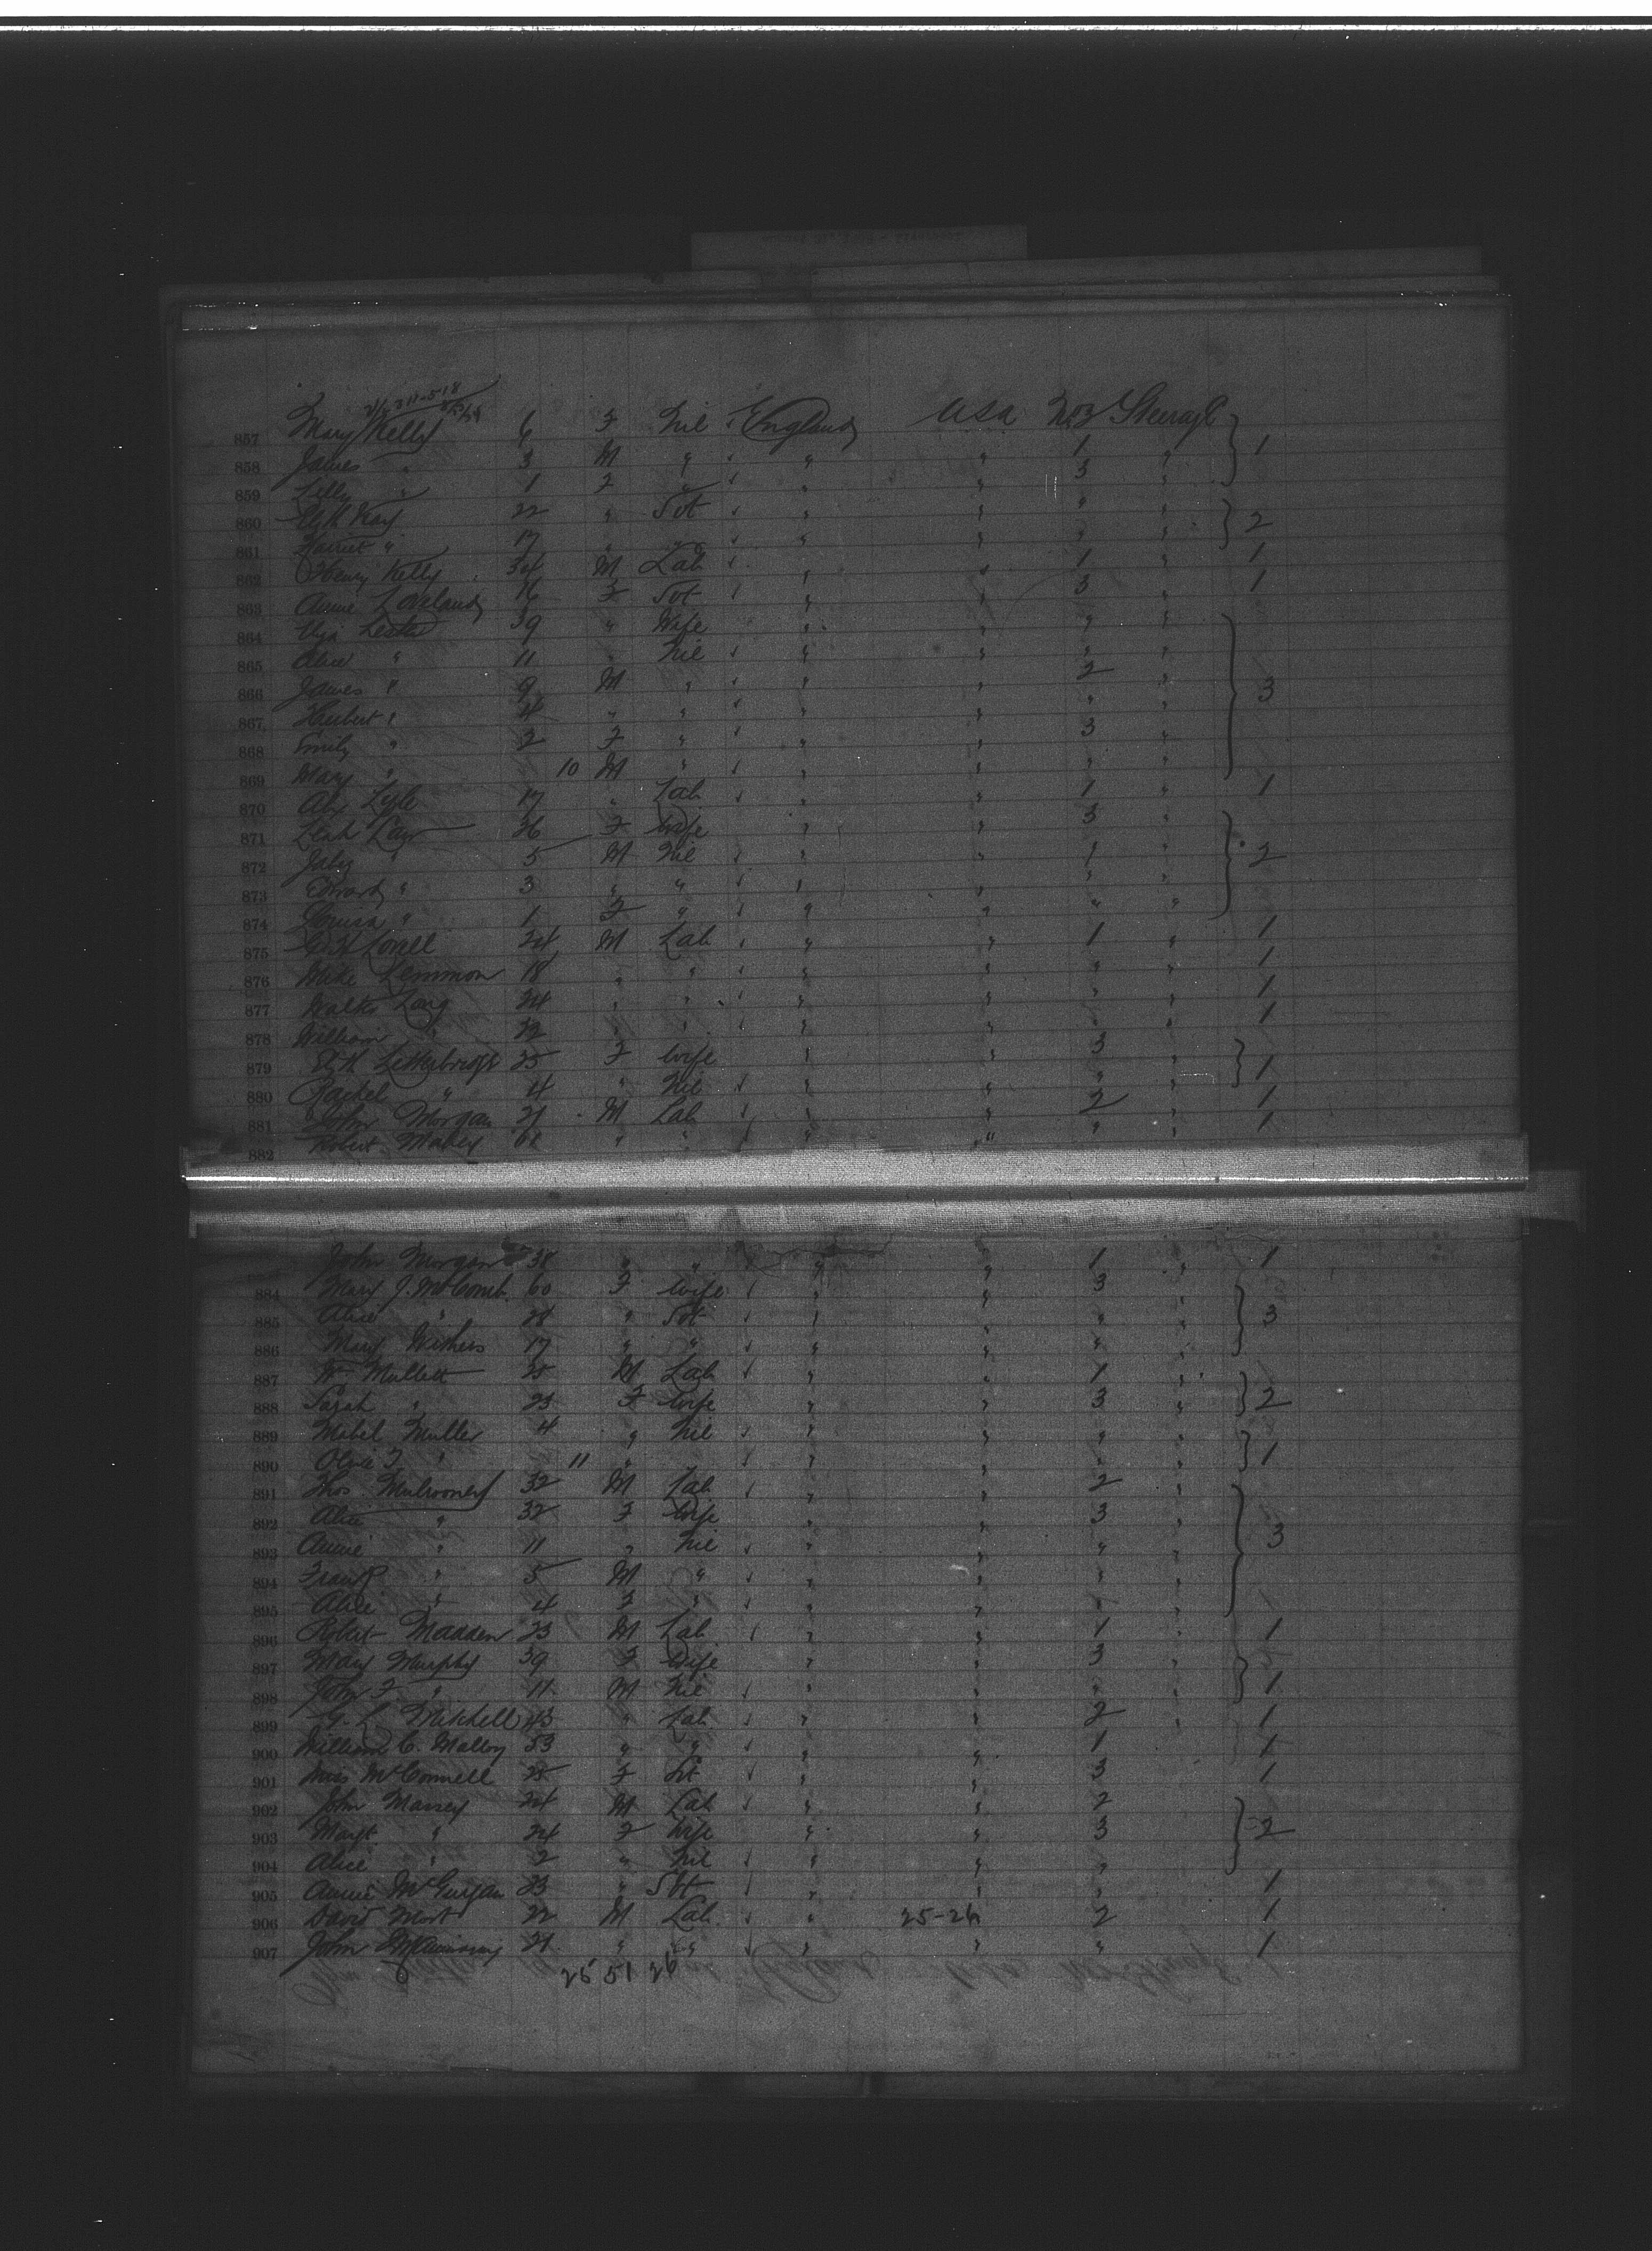 857 Mary Kelly 6 F Nil England USA No 3 Steerage 1
858 James " 3 M " " " 1 "
859 Lilly " 1 F " " " 3 "
860 Elizth Kay 22 " Spt " " " " 2
861 Harriet " 17 " " " " " "
862 Henry Kelly 34 M Lab " " 1 " 1
863 Annie Loveland 16 F Spt " " 3 " 1
864 Eliza Leslie 39 " Wife " " " "
865 Alice " 11 " Nil " " " "
866 James " 9 M " " " 2 " 3
867 Herbert " 4 " " " " " "
868 Emily " 2 F " " " 3 "
869 Mary " 10 M " " " " "
870 Alex Lyle 17 " Lab " " 1 " 1
871 Leah Law 36 F Wife " " 3 "
872 " 5 M Nil " " 1 " 2
873 Edward " 3 " " " " "
874 Louisa " 1 F " " " " "
875 Lovell 24 M Lab " " 1 " 1
876 Mike Lemmon 18 " " " " " " 1
877 Walter Long 24 " " " " " " 1
878 William " 22 " " " " " " 1
879 Elizth 25 F Wife " " 3 " 1
880 Rachel " 4 " Nil " " " "
881 John Morgan 21 M Lab " " 2 " 1
882 Robert Mabey " " " " " " 1
John Morgan 38 " " " " 1 " 1
884 Mary J. McComb 60 F Wife " " 3 "
885 Alice " 28 " Spt " " " " 3
886 Mary Withers 17 " " " " " "
887 W. Mullett 25 M Lab " " 1 "
888 Sarah " 23 F Wife " " 3 " 2
889 Mabel Muller 4 " Nil " " " "
890 Olive F " 11 " " " " " 1
891 Thos. Mulrooney 32 M Lab " " 2 "
892 Alice " 32 F Wife " " 3 "
893 Annie " 11 " Nil " " " " 3
894 Frank " 5 M " " " " "
895 Alice " 4 F " " " " "
896 Robert Madden 23 M Lab " " 1 " 1
897 Mary Murphy 39 F Wife " " 3 "
898 John F " 11 M Nil " " " " 1
899 Mitchell 43 " Lab " " 2 " 1
900 William C. Malloy 53 " " " " 1 1
901 Miss McConnell 25 F Spt " " 3 1
902 John Massey 24 M Lab " " 2
903 Margt. " 24 F Wife " " 3 2
904 Alice " 2 " Nil " " "
905 Annie McGurgan 23 " Spt " " " 1
906 David Mort 22 M Lab " 25-26 2 1
907 John 21 " " " " " 1
25 51 26